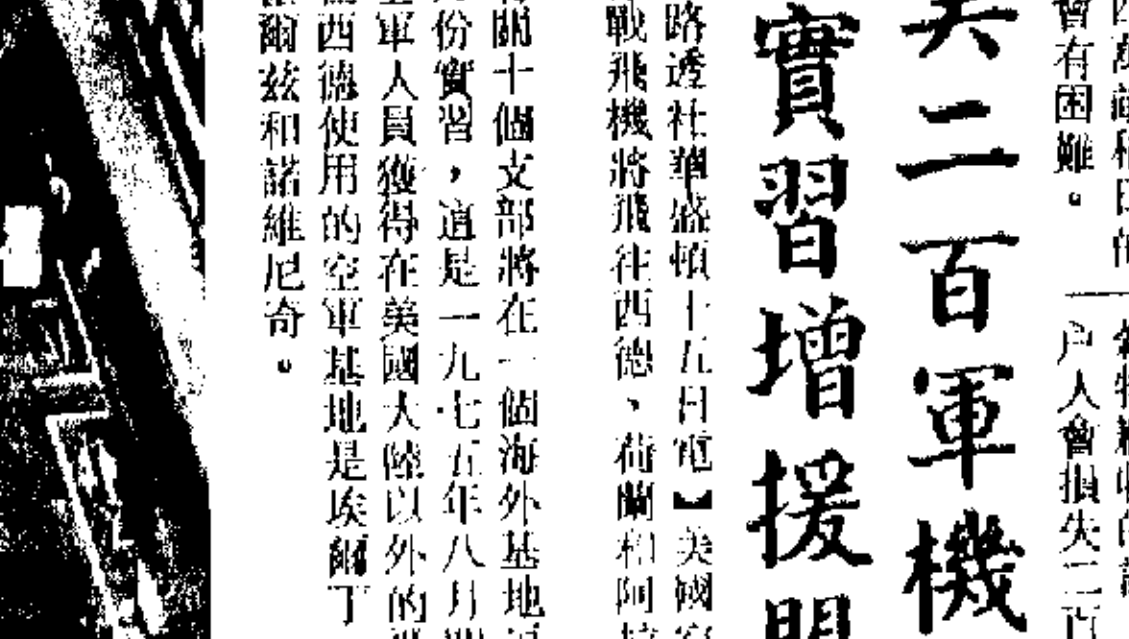 會有困難。
户人會損失二百
美二百軍機
實習增援
路透社華盛頓十五日電】美國空
戰飛機將飛往西德、荷蘭和阿
關十個支部將在一個海外基地
份實習，這是一九七五年八月
軍人員獲得在美國大陸以外的
西德使用的空軍基地是埃爾丁
爾茲和諾維尼奇。